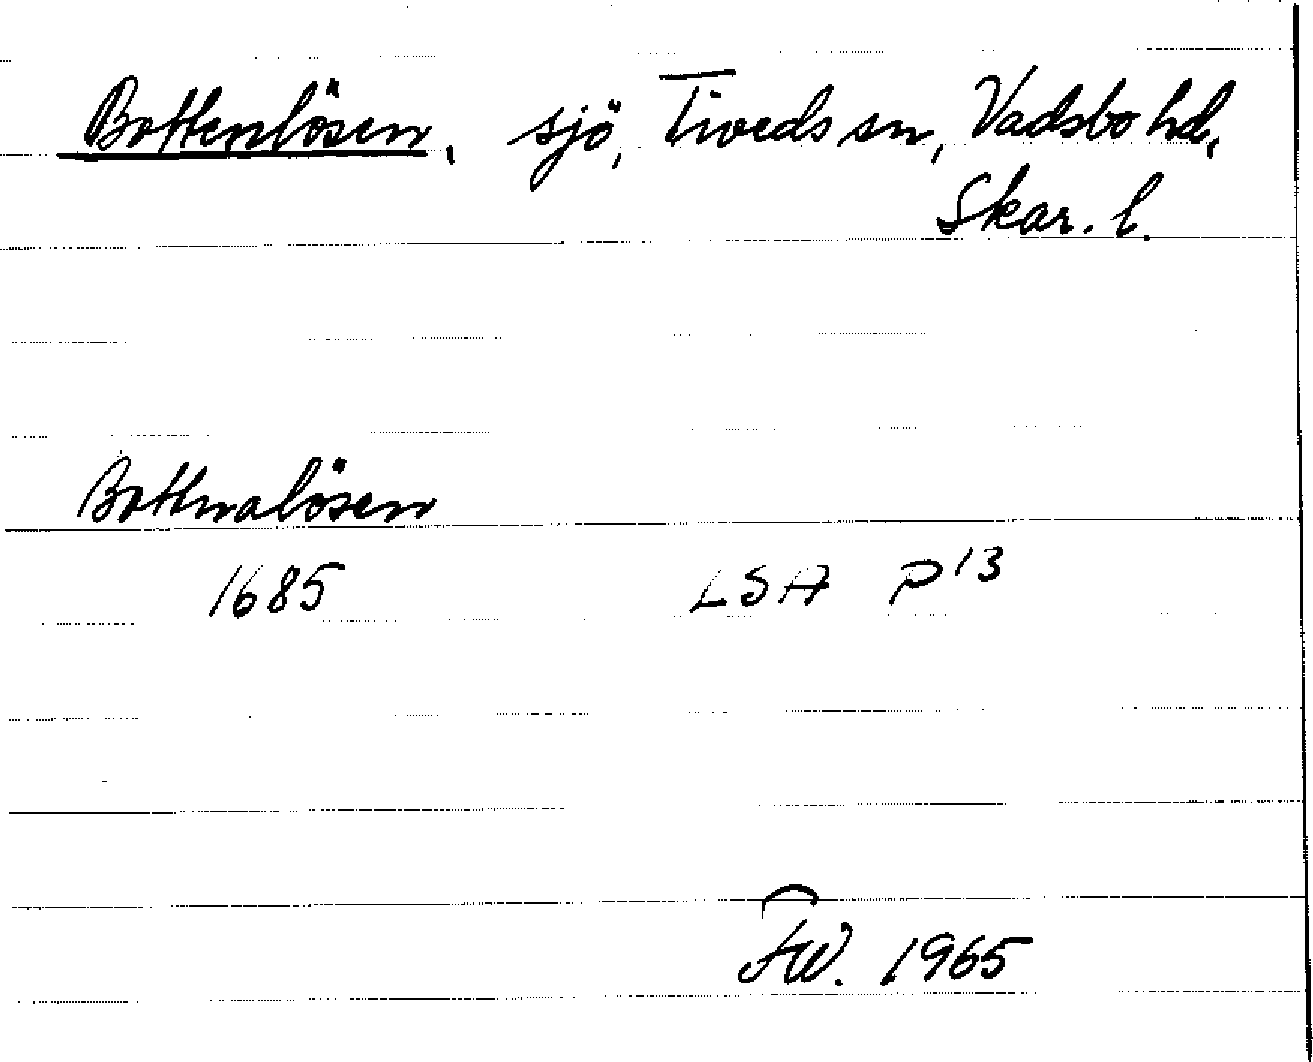 Bottenlösen, sjö, Tiveds sn, Vadsbo hd,
Skar. l.
Bottnalösen
1685 LSA P13
FW. 1965